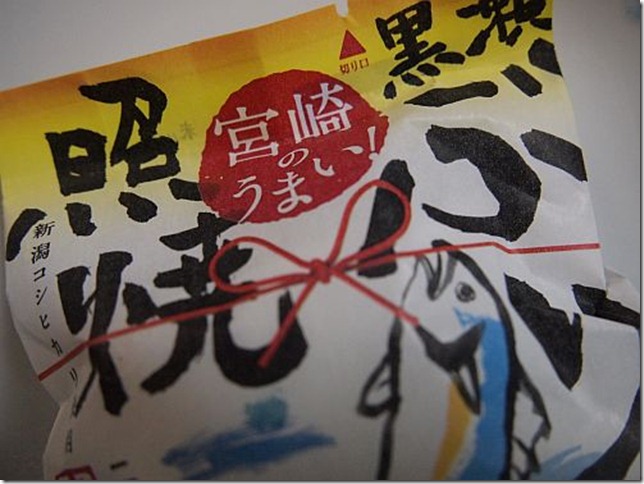 切り口
黒瀬
ぶ
宮崎
の
うまい!
照焼
新潟コシヒカリ使用